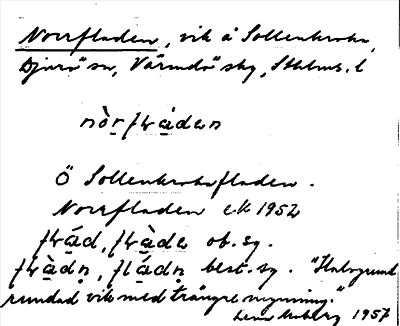 Norrfladen, vik å Sollenkroka,
Djurö sn, Värmdö skg, Sthlms. l
nòrfwádan
Ö Sollenkrokafladen.
Norrfladen ek 1952
fwád, fwàda ob. sg.
fwàdn, fládn best. sg. "Halvrund
rundad vik med trängre mynning."
1957